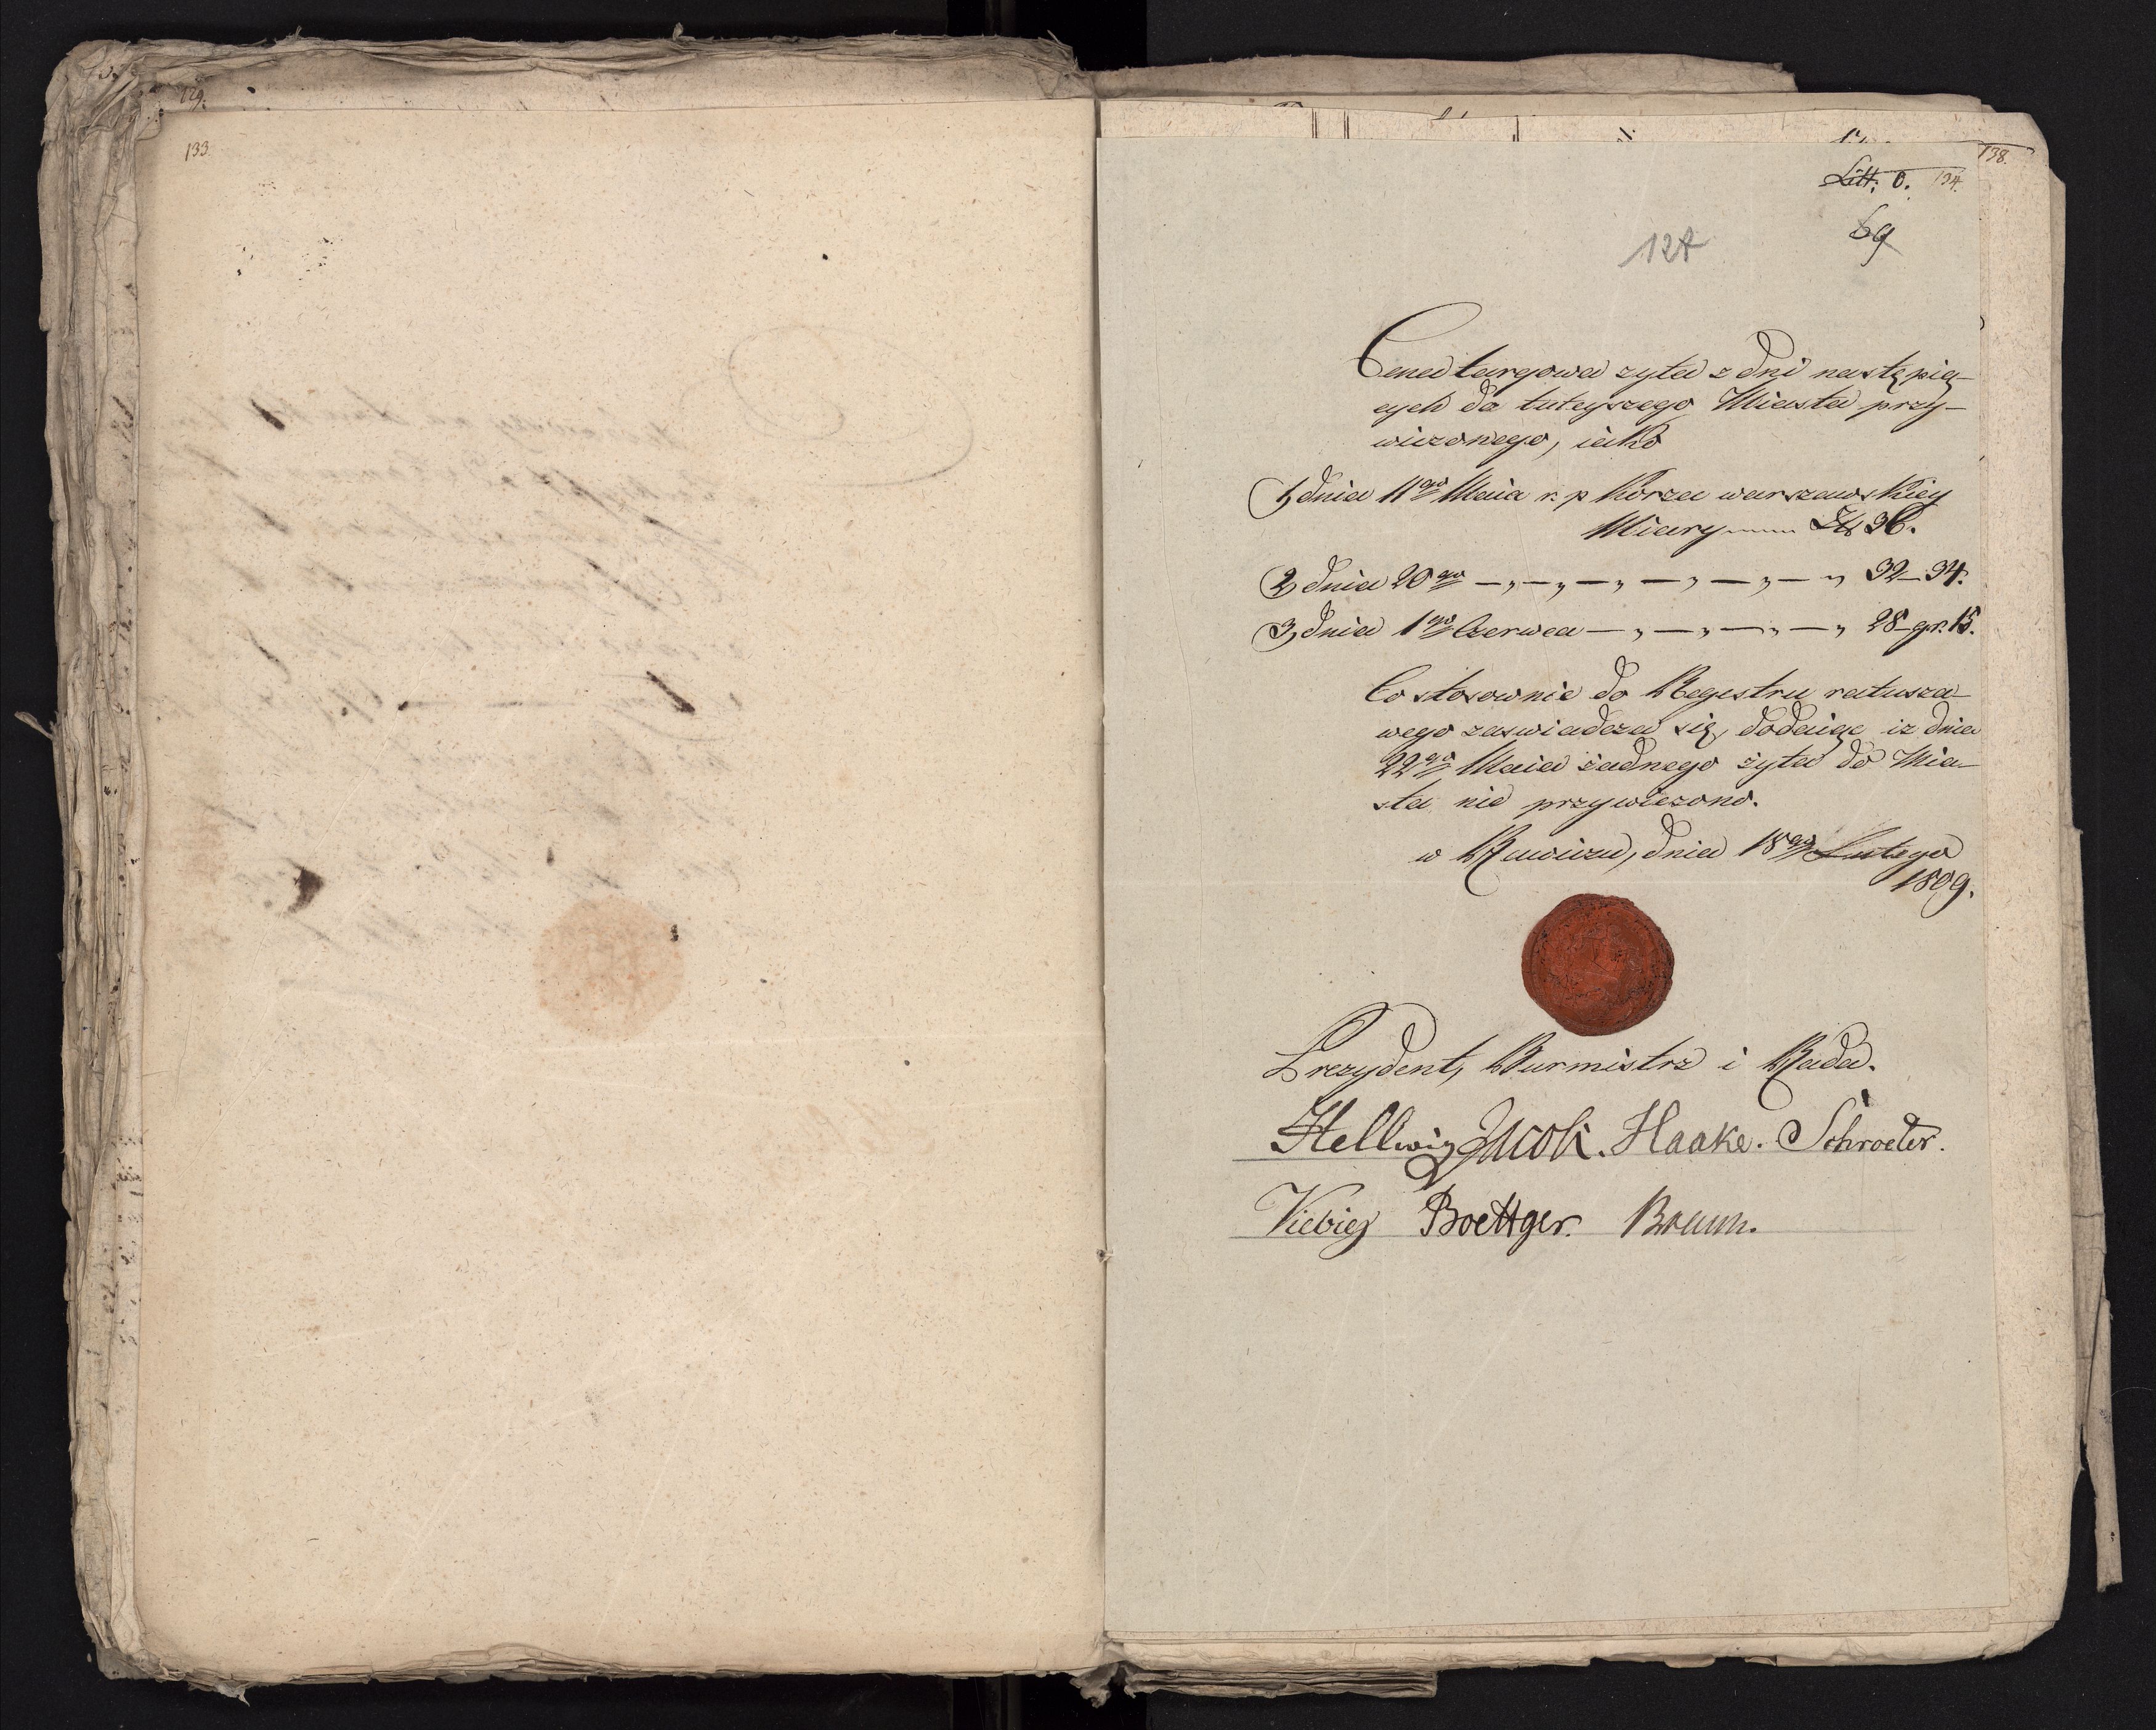 129.
133
138.
Litt. O. 134.
69
127
Cena targowa zyta z dni następią-
cych do tuteyszego Miasta przy-
wiezonego, iako
1, dnia 11go Maia r. p Korzec warszawskiey
Miary ------ Zł 36.
2, dnia 20go —„—„—„—„—„—„ 32—34.
3, dnia 1go Czerwca —„—„—„—„ 28 gr. 15.
Co stosownie do Regestru ratusza-
wego zaswiadcza się, dodaiąc iz dnia
22go Maia żadnego żyta do Mia-
sta nie przywiezono.
w Rawiczu, dnia 18go Lutego
1809.
Prezydent, Burmistrz i Rada.
Hellwig Jacobi. Haake. Schroeter.
Viebig Boettger. Braun.